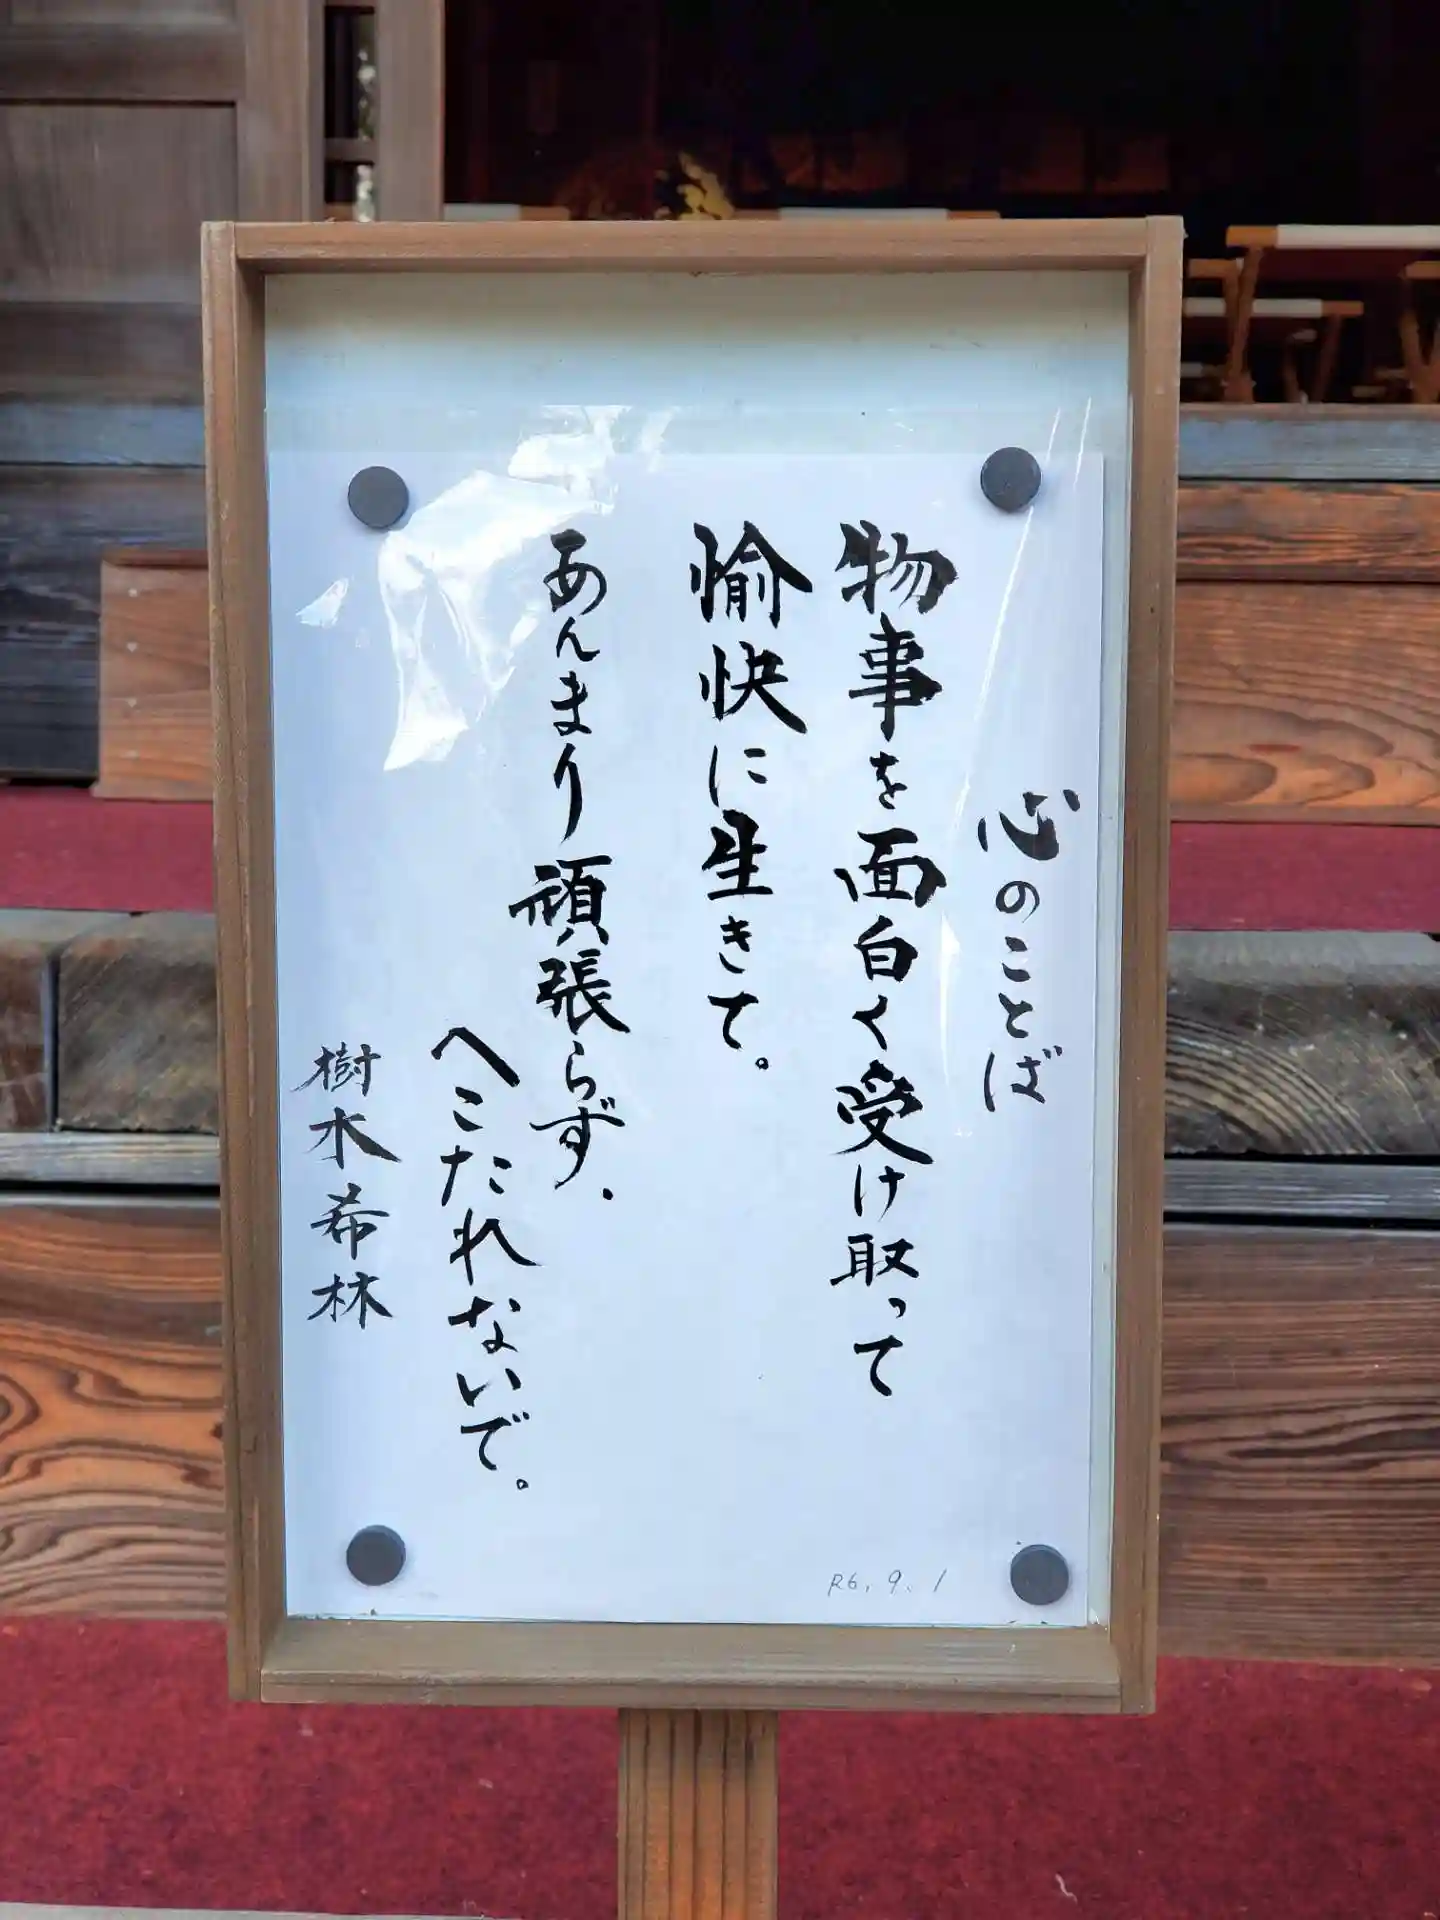 心のことば
物事を面白く受け取って
愉快に生きて。
あんまり頑張らず、
へこたれないで。
樹木希林
R6.9.1